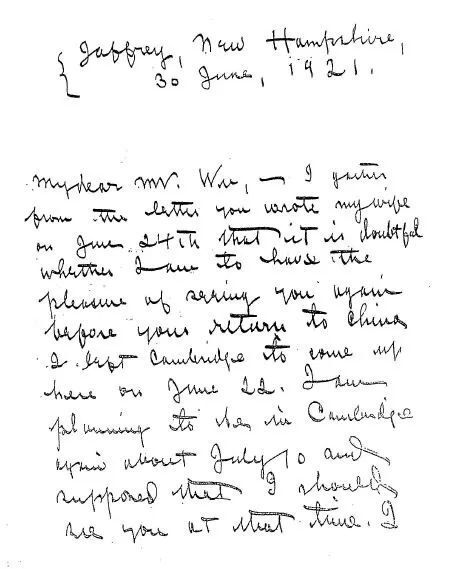 Jaffrey, New Hampshire,
30 June, 1921.
My dear Mr. Wu, — I gather
from the letter you wrote my wife
on June 24th that it is doubtful
whether I am to have the
pleasure of seeing you again
before your return to China
I left Cambridge to come up
here on June 22. I am
planning to be in Cambridge
again about July 10 and
supposed that I should
see you at that time. I